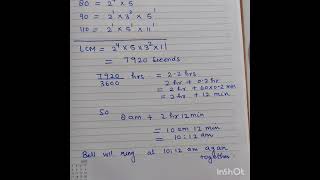 80 = 2⁴ × 5
90 = 2¹ × 3² × 5¹
110 = 2¹ × 5¹ × 11¹
LCM = 2⁴ × 5 × 3² × 11
= 7920 seconds
7920/3600 hrs = 2.2 hrs
= 2 hr + 0.2 hr
= 2 hr + 60×0.2 min
= 2 hr + 12 min
So
8 am + 2 hr 12 min
= 10 am 12 min
= 10:12 am
Bell will ring at 10:12 am again
together.
InShOt